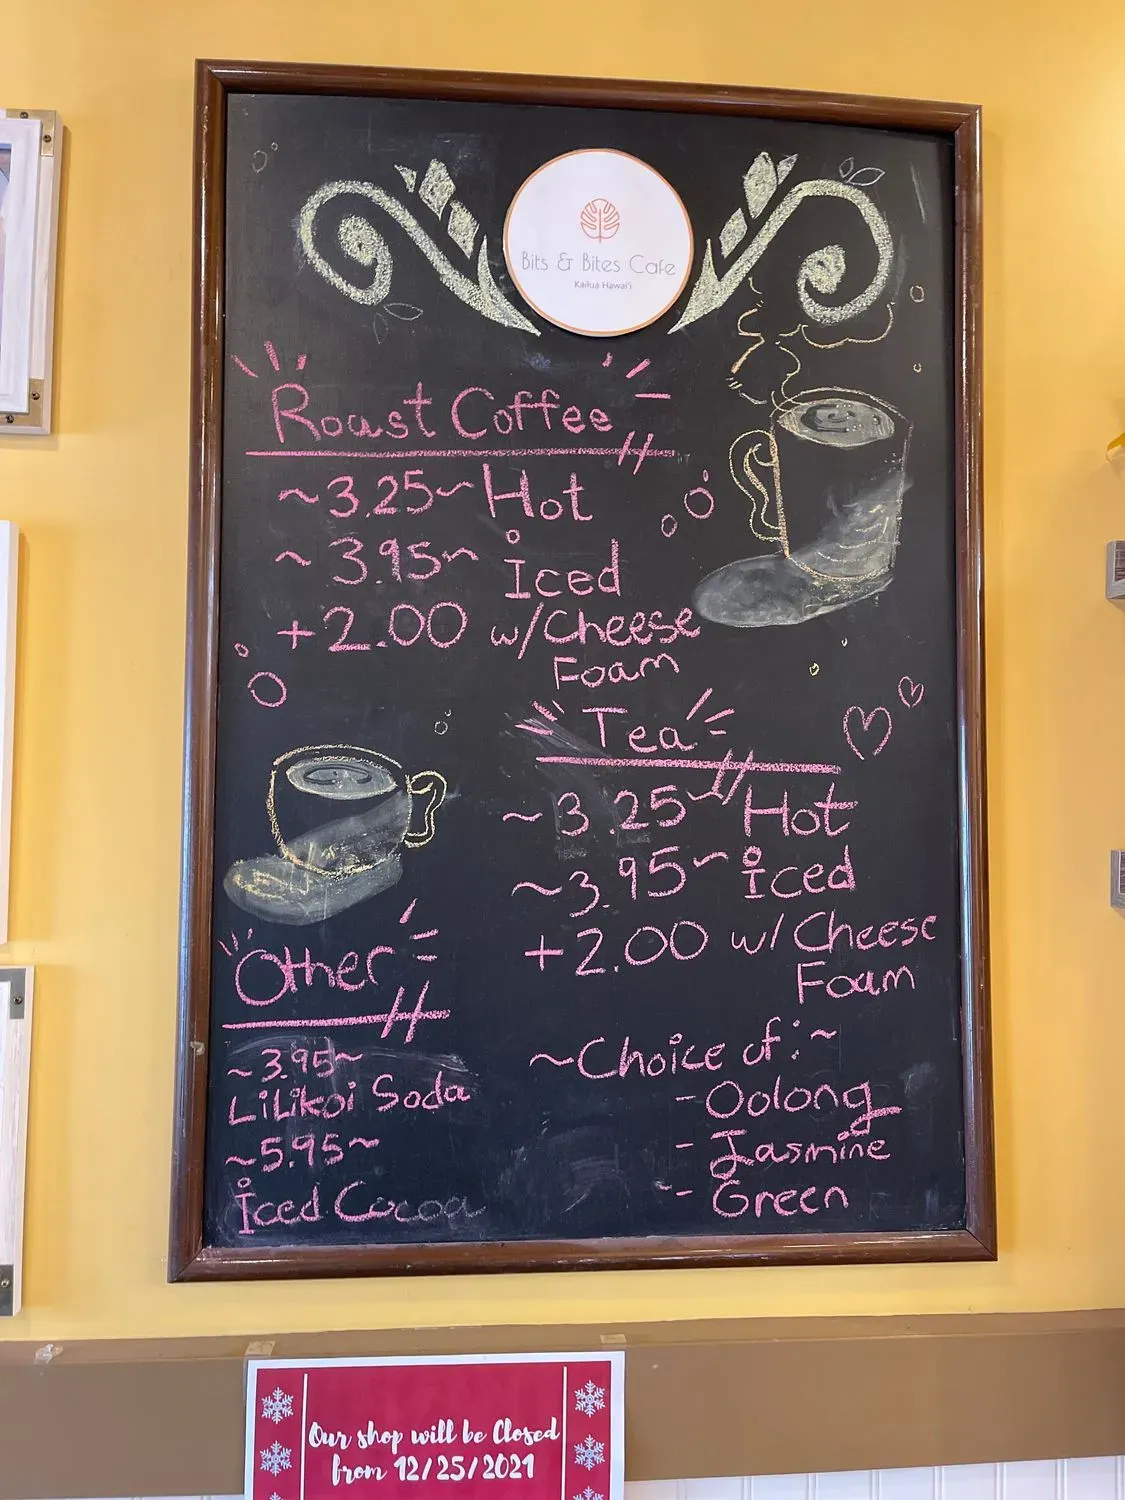 Bits & Bites Cafe
Kailua Hawai'i
Roast Coffee
~3.25~ Hot
~3.95~ Iced
+2.00 w/Cheese
Foam
Tea
~3.25~ Hot
~3.95~ Iced
+2.00 w/Cheese
Foam
~Choice of:~
-Oolong
-Jasmine
-Green
Other
~3.95~
LiLikoi Soda
~5.95~
Iced Cocoa
Our shop will be Closed
from 12/25/2021